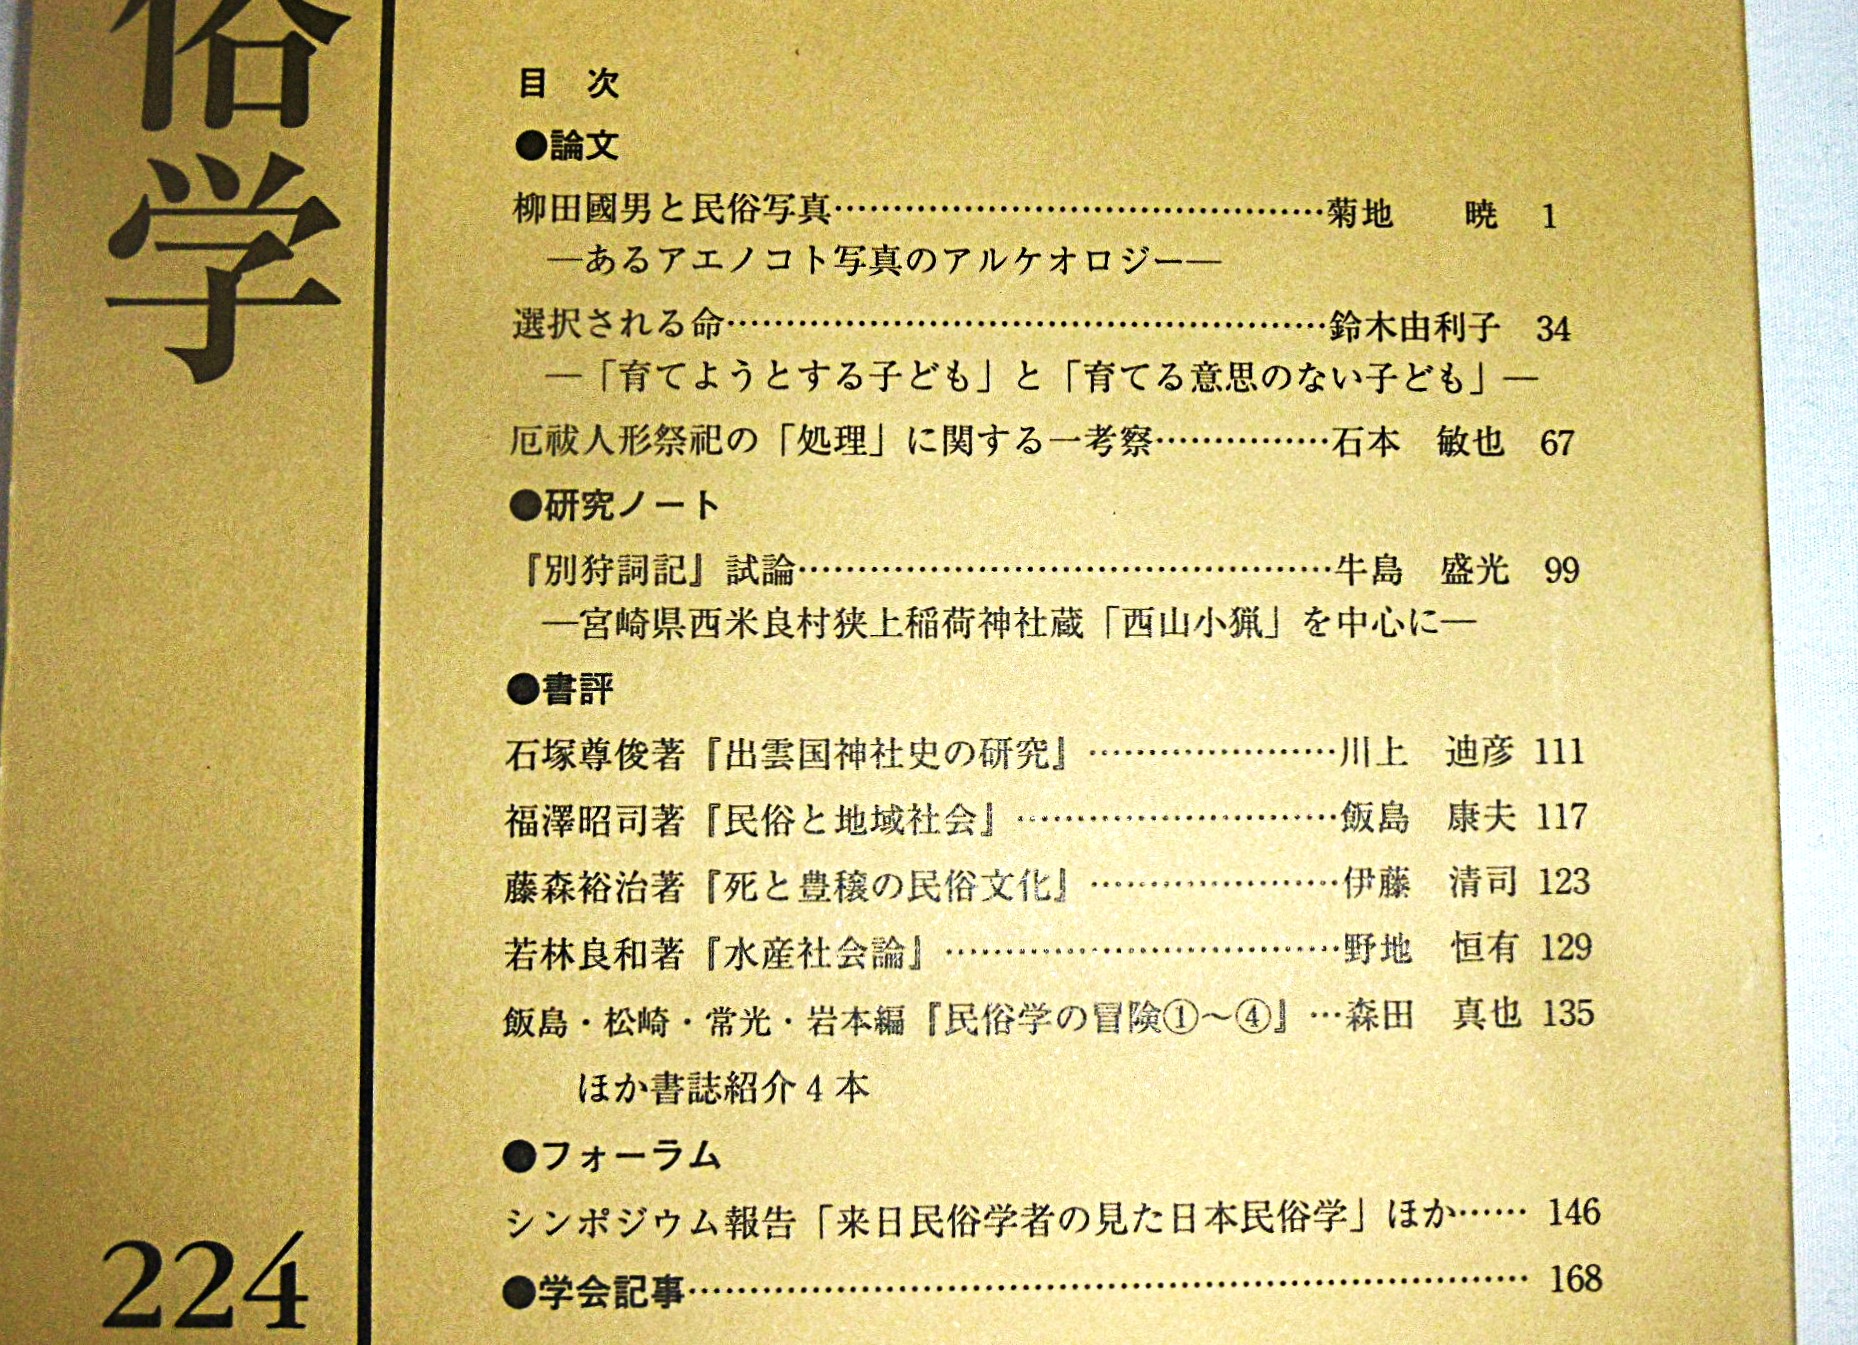 俗学
224
目 次
●論文
柳田國男と民俗写真……………………………………菊地 暁 1
―あるアエノコト写真のアルケオロジー―
選択される命……………………………………………鈴木由利子 34
―「育てようとする子ども」と「育てる意思のない子ども」―
厄祓人形祭祀の「処理」に関する一考察……………石本 敏也 67
●研究ノート
『別狩詞記』試論………………………………………牛島 盛光 99
―宮崎県西米良村狭上稲荷神社蔵「西山小猟」を中心に―
●書評
石塚尊俊著『出雲国神社史の研究』…………………川上 迪彦 111
福澤昭司著『民俗と地域社会』………………………飯島 康夫 117
藤森裕治著『死と豊穣の民俗文化』…………………伊藤 清司 123
若林良和著『水産社会論』……………………………野地 恒有 129
飯島・松崎・常光・岩本編『民俗学の冒険①～④』…森田 真也 135
ほか書誌紹介4本
●フォーラム
シンポジウム報告「来日民俗学者の見た日本民俗学」ほか…… 146
●学会記事……………………………………………………………… 168